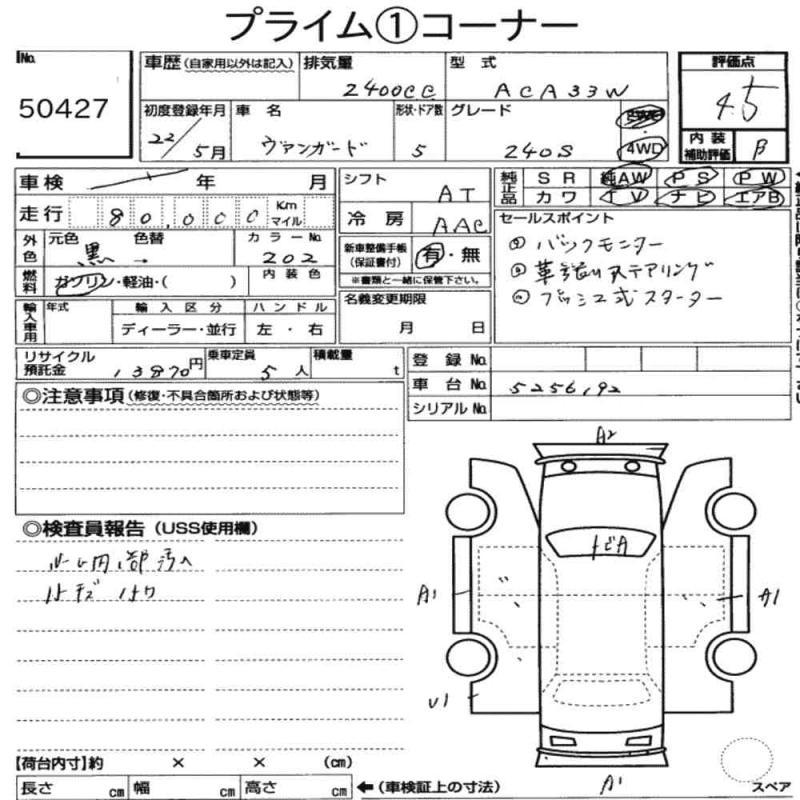 プライム①コーナー
No. 50427
車歴 (自家用以外は記入) 排気量 2400cc 型式 ACA33W 評価点 4.5
初度登録年月 22/5月 車名 ヴァンガード 形状・ドア数 5 グレード 240S 2WD 4WD 内装補助評価 B
車検 年 月 シフト AT 純正品 SR 純AW PS PW
走行 80,000 Km マイル 冷房 AAC カワ TV ナビ エアB
外色 元色 黒 色替 カラーNo. 202 新車整備手帳(保証書付) 有・無 セールスポイント
燃料 ガソリン・軽油・( ) 内装色 ※書類と一緒に保管下さい。 ① バックモニター
輸入車用 年式 輸入区分 ハンドル 名義変更期限 ② 革巻きステアリング
ディーラー・並行 左・右 月 日 ③ プッシュ式スターター
リサイクル預託金 13870円 乗車定員 5人 積載量 t 登録No.
車台No. 5256192
シリアルNo.
◎注意事項(修復・不具合箇所および状態等)
◎検査員報告(USS使用欄)
ルーム内1部汚れ
ハナキズ
A2
トビA
A1
A1
U1
A1
【荷台内寸】約 × × (cm)
長さ cm 幅 cm 高さ cm ←(車検証上の寸法)
スペア